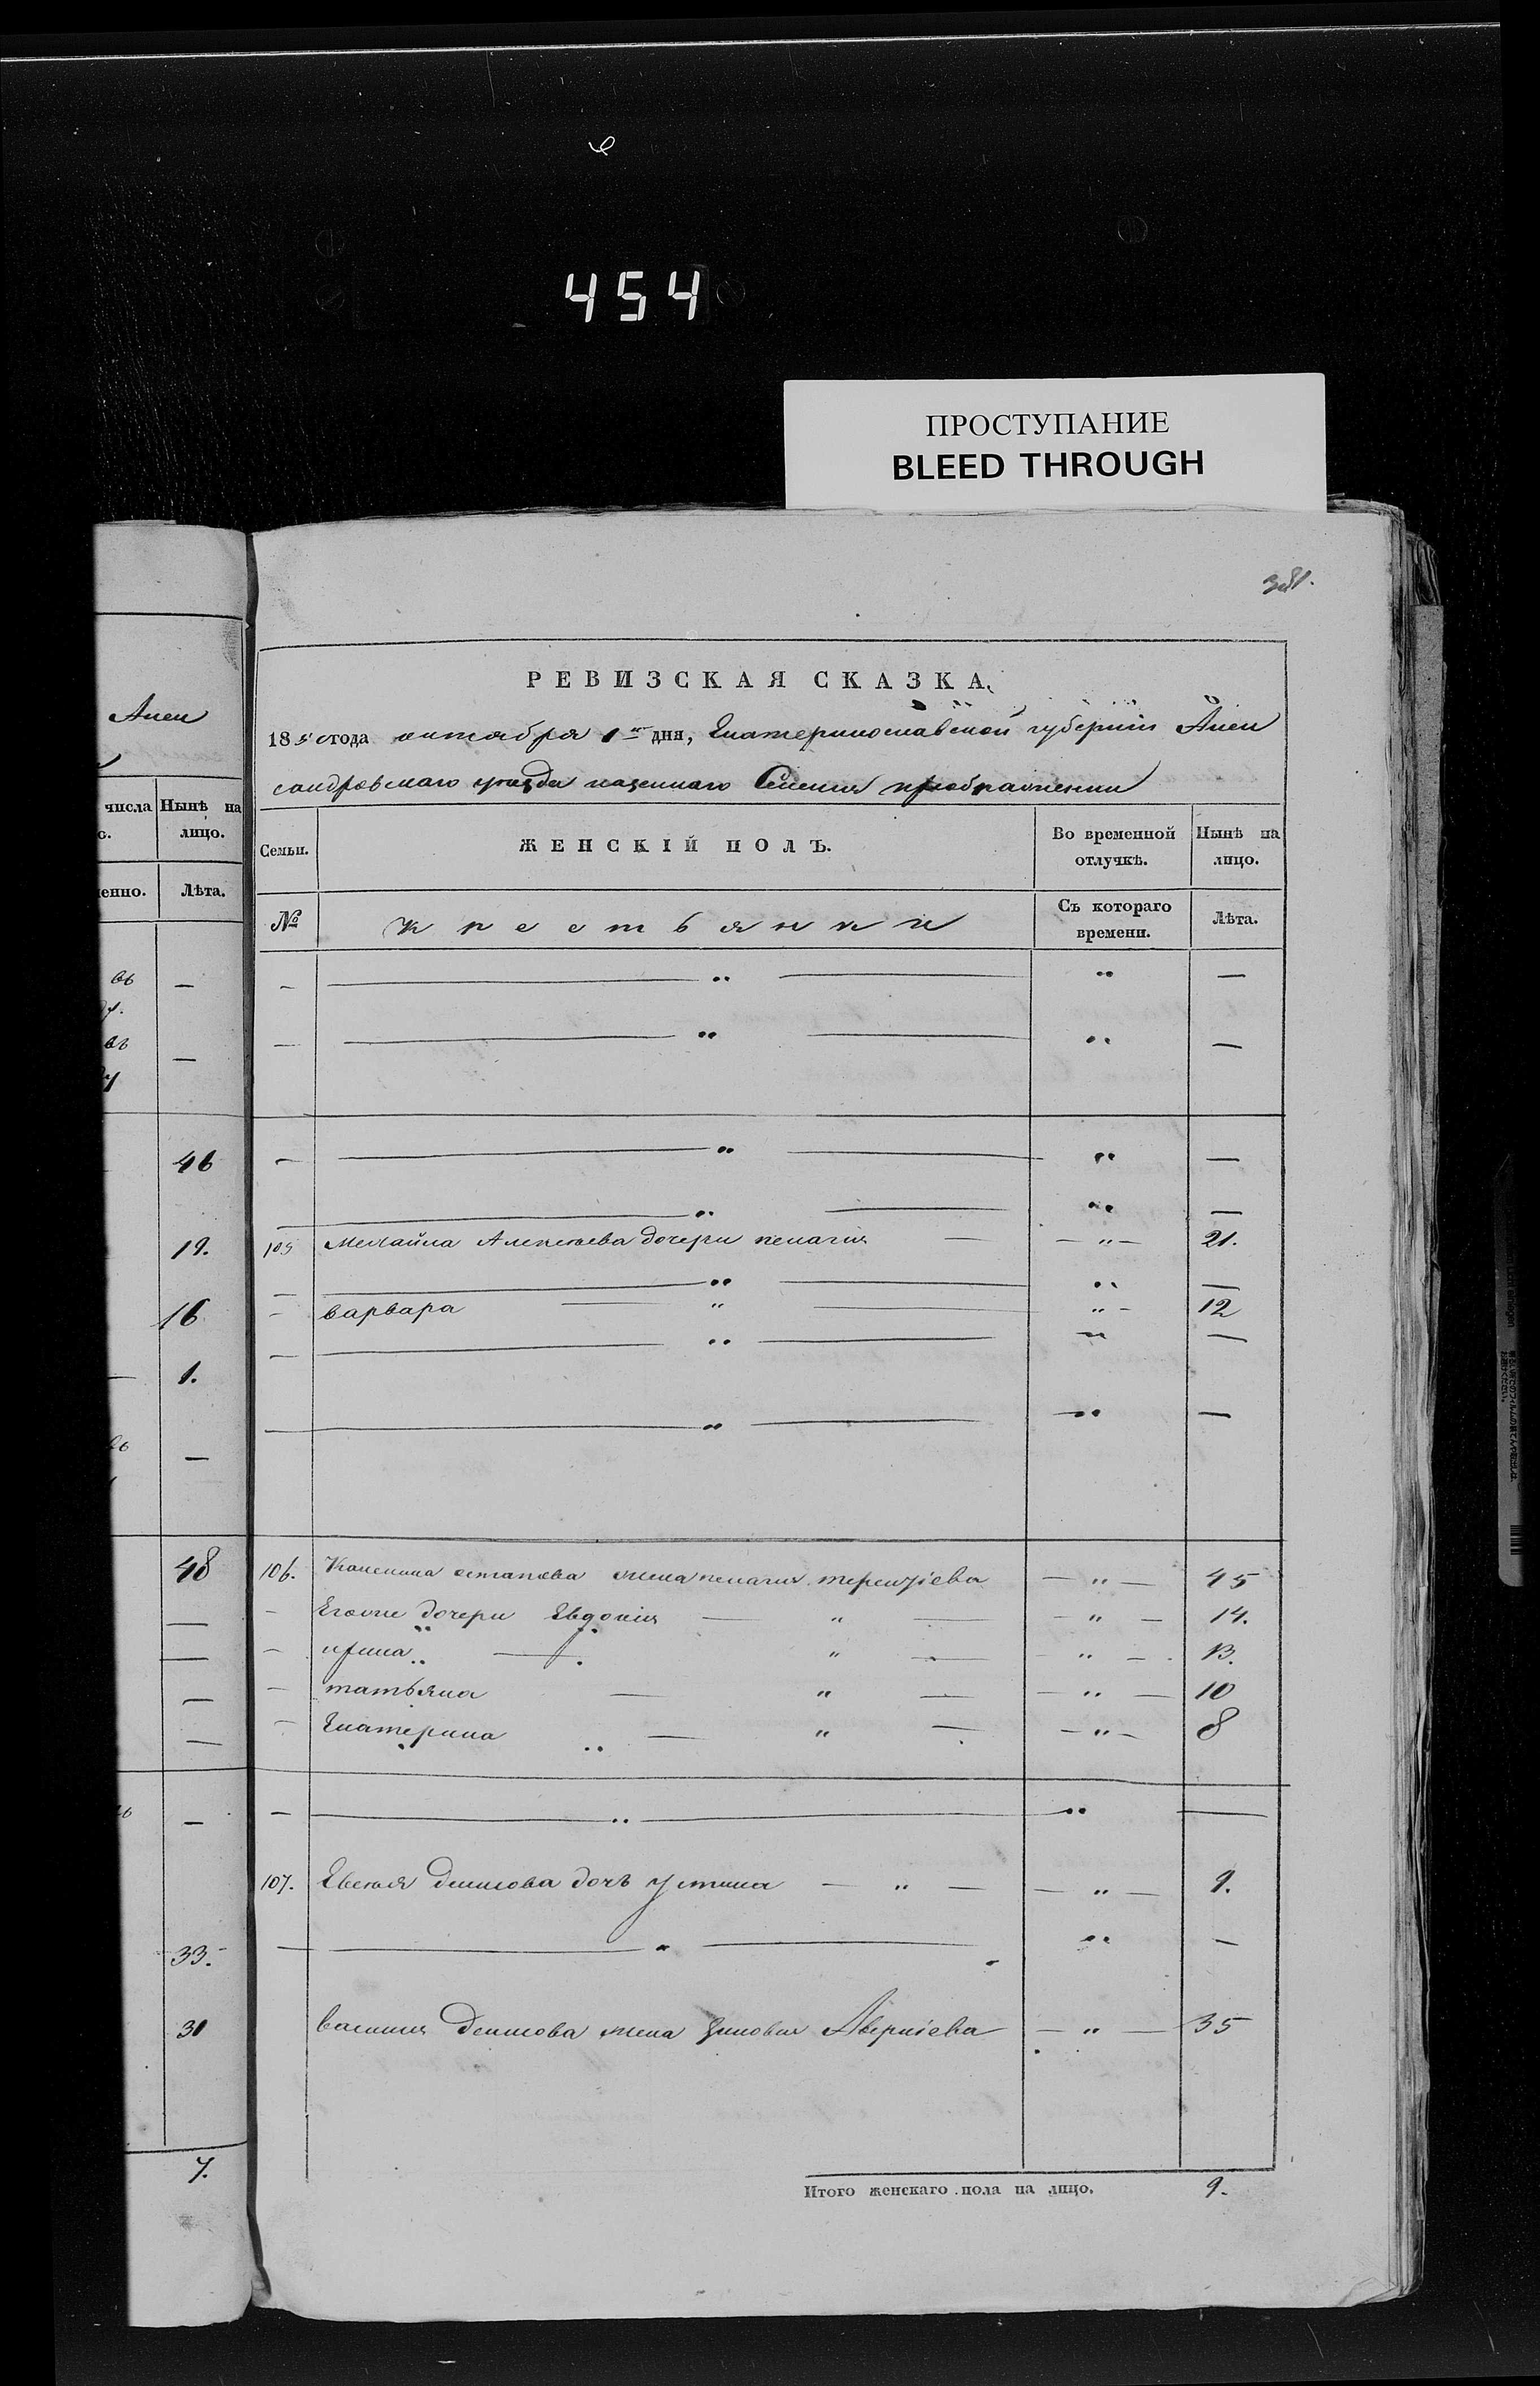 454
ПРОСТУПАНИЕ
BLEED THROUGH
381.
РЕВИЗСКАЯ СКАЗКА.
1850 года октября 1го дня, Екатеринославской губерніи Алек
сандровскаго уезда казеннаго Селения преображенки
Алек
числа Нынѣ на
лицо.
енно. Лѣта.
Семьи. ЖЕНСКІЙ ПОЛЪ. Во временной отлучкѣ. Нынѣ на лицо.
№ Крестьянки Съ котораго времени. Лѣта.
въ —
въ —
46 — „ „ —
— „ „ —
19. 105 Михайла Алексеева дочери пелагия — — „ — 21.
— „ „ —
16 — варвара — „ — „ — 12
— „ „ —
1.
— „ „ —
въ —
48 106. остапова жена пелагия терентіева — „ — 45
— — Егоже дочери Евдокия — „ — — „ — 14.
— — ирина — „ — — „ — 13.
— — татьяна — „ — — „ — 10
— — Екатерина — „ — — „ — 8
— — „ „ —
107. Евсея денисова дочь устина — „ — — „ — 9.
33. — „ „ —
31 василия денисова жена зиновия Аверкіева — „ — 35
7.
Итого женскаго пола на лицо. 9.